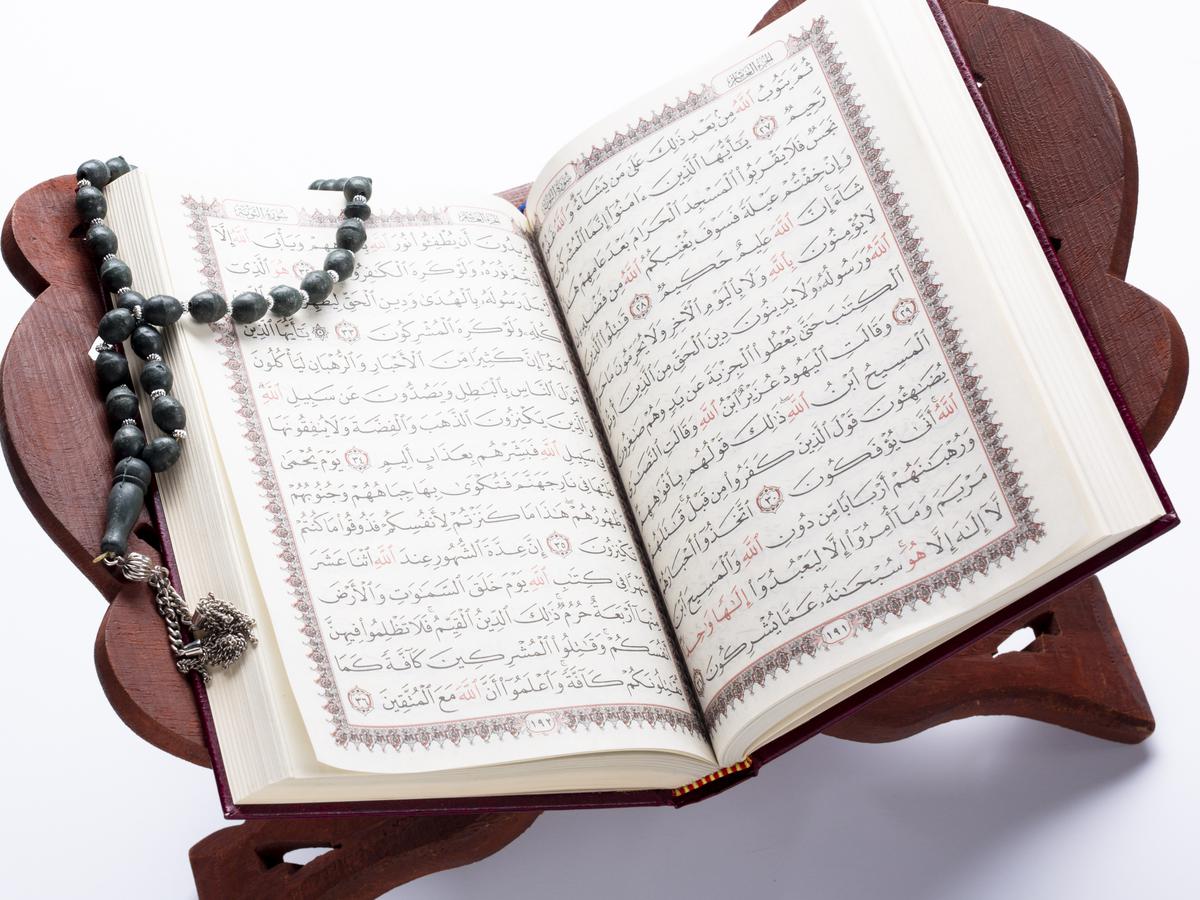 الجزء العاشر
ثُمَّ يَتُوبُ ٱللَّهُ مِنۢ بَعْدِ ذَٰلِكَ عَلَىٰ مَن يَشَآءُ وَٱللَّهُ
رَّحِيمٌ ٢٧ يَـٰٓأَيُّهَا ٱلَّذِينَ ءَامَنُوٓا۟ إِنَّمَا
نَجَسٌ فَلَا يَقْرَبُوا۟ ٱلْمَسْجِدَ ٱلْحَرَامَ بَعْدَ عَامِهِمْ
وَإِنْ خِفْتُمْ عَيْلَةً فَسَوْفَ يُغْنِيكُمُ ٱللَّهُ مِن
شَآءَ إِنَّ ٱللَّهَ عَلِيمٌ حَكِيمٌ ٢٨ قَـٰتِلُوا۟ ٱلَّذِينَ
لَا يُؤْمِنُونَ بِٱللَّهِ وَلَا بِٱلْيَوْمِ ٱلْـَٔاخِرِ وَلَا يُحَرِّمُونَ مَا
ٱللَّهُ وَرَسُولُهُۥ وَلَا يَدِينُونَ دِينَ ٱلْحَقِّ مِنَ ٱلَّذِينَ
ٱلْكِتَـٰبَ حَتَّىٰ يُعْطُوا۟ ٱلْجِزْيَةَ عَن يَدٍ وَهُمْ صَـٰغِرُونَ
٢٩ وَقَالَتِ ٱلْيَهُودُ عُزَيْرٌ ٱبْنُ ٱللَّهِ وَقَالَتِ
ٱلْمَسِيحُ ٱبْنُ ٱللَّهِ ذَٰلِكَ قَوْلُهُم بِأَفْوَٰهِهِمْ
يُضَـٰهِـُٔونَ قَوْلَ ٱلَّذِينَ كَفَرُوا۟ مِن قَبْلُ
ٱللَّهُ أَنَّىٰ يُؤْفَكُونَ ٣٠ ٱتَّخَذُوٓا۟
وَرُهْبَـٰنَهُمْ أَرْبَابًا مِّن دُونِ ٱللَّهِ وَٱلْمَسِيحَ ٱبْنَ
مَرْيَمَ وَمَآ أُمِرُوٓا۟ إِلَّا لِيَعْبُدُوٓا۟ إِلَـٰهًا وَٰحِدًا
لَّآ إِلَـٰهَ إِلَّا هُوَ سُبْحَـٰنَهُۥ عَمَّا يُشْرِكُونَ
١٩١
سورة التوبة
أَن يُطْفِـُٔوا۟ نُورَ ٱللَّهِ وَيَأْبَى ٱللَّهُ إِلَّآ
نُورَهُۥ وَلَوْ كَرِهَ ٱلْكَـٰفِرُونَ هُوَ ٱلَّذِىٓ
رَسُولَهُۥ بِٱلْهُدَىٰ وَدِينِ ٱلْحَقِّ
كُلِّهِۦ وَلَوْ كَرِهَ ٱلْمُشْرِكُونَ ٣٣ يَـٰٓأَيُّهَا ٱلَّذِينَ
إِنَّ كَثِيرًا مِّنَ ٱلْأَحْبَارِ وَٱلرُّهْبَانِ لَيَأْكُلُونَ
ٱلنَّاسِ بِٱلْبَـٰطِلِ وَيَصُدُّونَ عَن سَبِيلِ ٱللَّهِ
وَٱلَّذِينَ يَكْنِزُونَ ٱلذَّهَبَ وَٱلْفِضَّةَ وَلَا يُنفِقُونَهَا
سَبِيلِ ٱللَّهِ فَبَشِّرْهُم بِعَذَابٍ أَلِيمٍ ٣٤ يَوْمَ يُحْمَىٰ
عَلَيْهَا فِى نَارِ جَهَنَّمَ فَتُكْوَىٰ بِهَا جِبَاهُهُمْ وَجُنُوبُهُمْ
وَظُهُورُهُمْ هَـٰذَا مَا كَنَزْتُمْ لِأَنفُسِكُمْ فَذُوقُوا۟ مَا كُنتُمْ
تَكْنِزُونَ ٣٥ إِنَّ عِدَّةَ ٱلشُّهُورِ عِندَ ٱللَّهِ ٱثْنَا عَشَرَ
شَهْرًا فِى كِتَـٰبِ ٱللَّهِ يَوْمَ خَلَقَ ٱلسَّمَـٰوَٰتِ وَٱلْأَرْضَ
مِنْهَآ أَرْبَعَةٌ حُرُمٌ ذَٰلِكَ ٱلدِّينُ ٱلْقَيِّمُ فَلَا تَظْلِمُوا۟ فِيهِنَّ
أَنفُسَكُمْ وَقَـٰتِلُوا۟ ٱلْمُشْرِكِينَ كَآفَّةً كَمَا
يُقَـٰتِلُونَكُمْ كَآفَّةً وَٱعْلَمُوٓا۟ أَنَّ ٱللَّهَ مَعَ ٱلْمُتَّقِينَ ٣٦
١٩٢